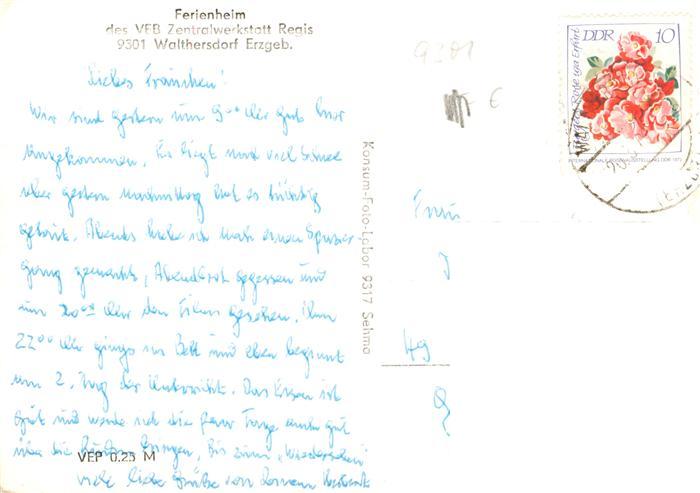 Ferienheim
des VEB Zentralwerkstatt Regis
9301 Walthersdorf Erzgeb.
Liebes Frauchen!
Wir sind gestern um 9⁰⁰ Uhr gut hier
angekommen. Es liegt und viel Schnee
aber gestern nachmittag hat es tüchtig
getaut. Abends habe ich noch einen Spazier
gang gemacht, Abendbrot gegessen und
um 20⁰⁰ Uhr den Film gesehen. Um
22⁰⁰ Uhr gings ins Bett und eben beginnt
am 2. Tag der Unterricht. Das Essen ist
gut und werde ich die paar Tage auch gut
über die Runden bringen. Bis zum "Wiedersehen"
viele liebe Grüße von Deinem
VEP 0.25 M
Konsum-Foto-Labor 9317 Sehma
9301
€
DDR 10
Rose iga Erfurt
INTERNATIONALE ROSENAUSSTELLUNG DDR 1972
49